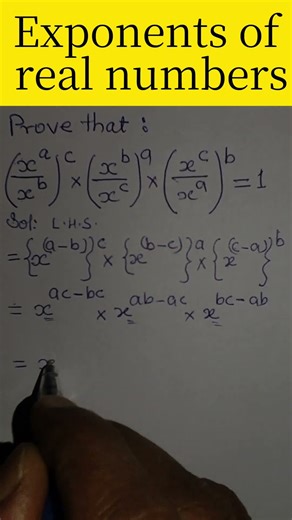 Exponents of
real numbers
Prove that :
(x^a/x^b)^c × (x^b/x^c)^a × (x^c/x^a)^b = 1
Sol: L.H.S.
= {x^(a-b)}^c × {x^(b-c)}^a × {x^(c-a)}^b
= x^ac-bc × x^ab-ac × x^bc-ab
= x